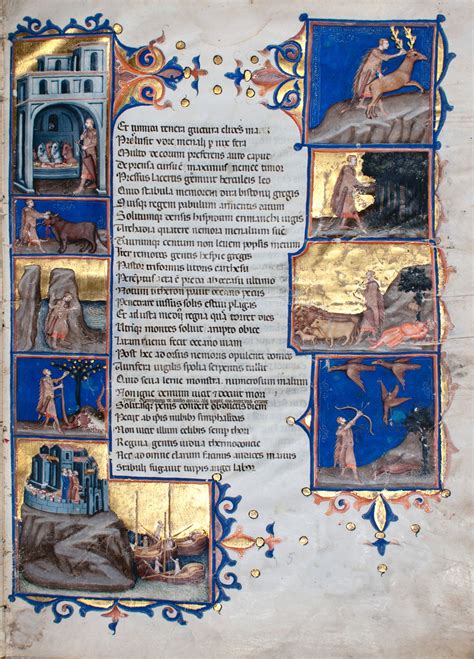 Et tumida tenera guttura elidens manu
Prelusit menali fera
Multo decorum preferens auro caput
Deprensa cursu maximus nemee timor
Pressus lacertis gemuit herculeis leo
Quid stabula memorem dira bistonii gregis
Suisque regem pabulum armentis datum
Solitumque densis hispidum erimanthi iugis
Archadia quatere nemora menalium suem
Taurumque centum non levem populis metum
Inter remotos gentis hesperie greges
Pastor triformis litoris
Peremptus acta est preda ab occasu ultimo
Notum citheron pavit oceano pecus
Penetrare iussus solis estivi plagas
Et adusta medius regna que torret dies
montes solvit abrupto obice
Latam ruenti fecit oceano viam
Post hec adorsus nemoris opulenti domos
Aurifera vigilis spolia serpentis tulit
Quid seva lerne monstra numerosum malum
Non igne demum vicit et docuit mori
Solitasque pennis condere obductis diem
Petit ab ipsis nubibus stimphalidas
Non vicit illum celibis semper thori
Regina gentis vidua
Nec ad omne clarum facinus audaces manus
Stabuli fugavit turpis augei labor